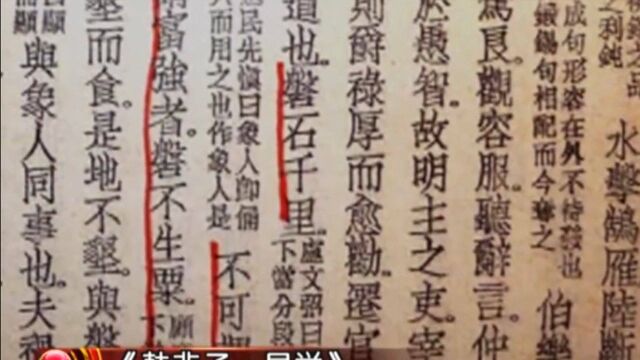 之利鈍
水擊鵠雁陸斷
成句形容在外不待發也
鍛錫句相配而今奪之
伯樂
駑良。觀容服。聽辭言。仲
於愚智。故明主之吏。宰
則爵祿厚而愈勸。遷官
道也。磐石千里。
盧文弨曰
下當分段
民先愼曰象人卽俑
人而用之也作象人是
不可
富強者。磐不生粟。
顧
下
墾而食。是地不墾。與磐
與象人同事也。夫